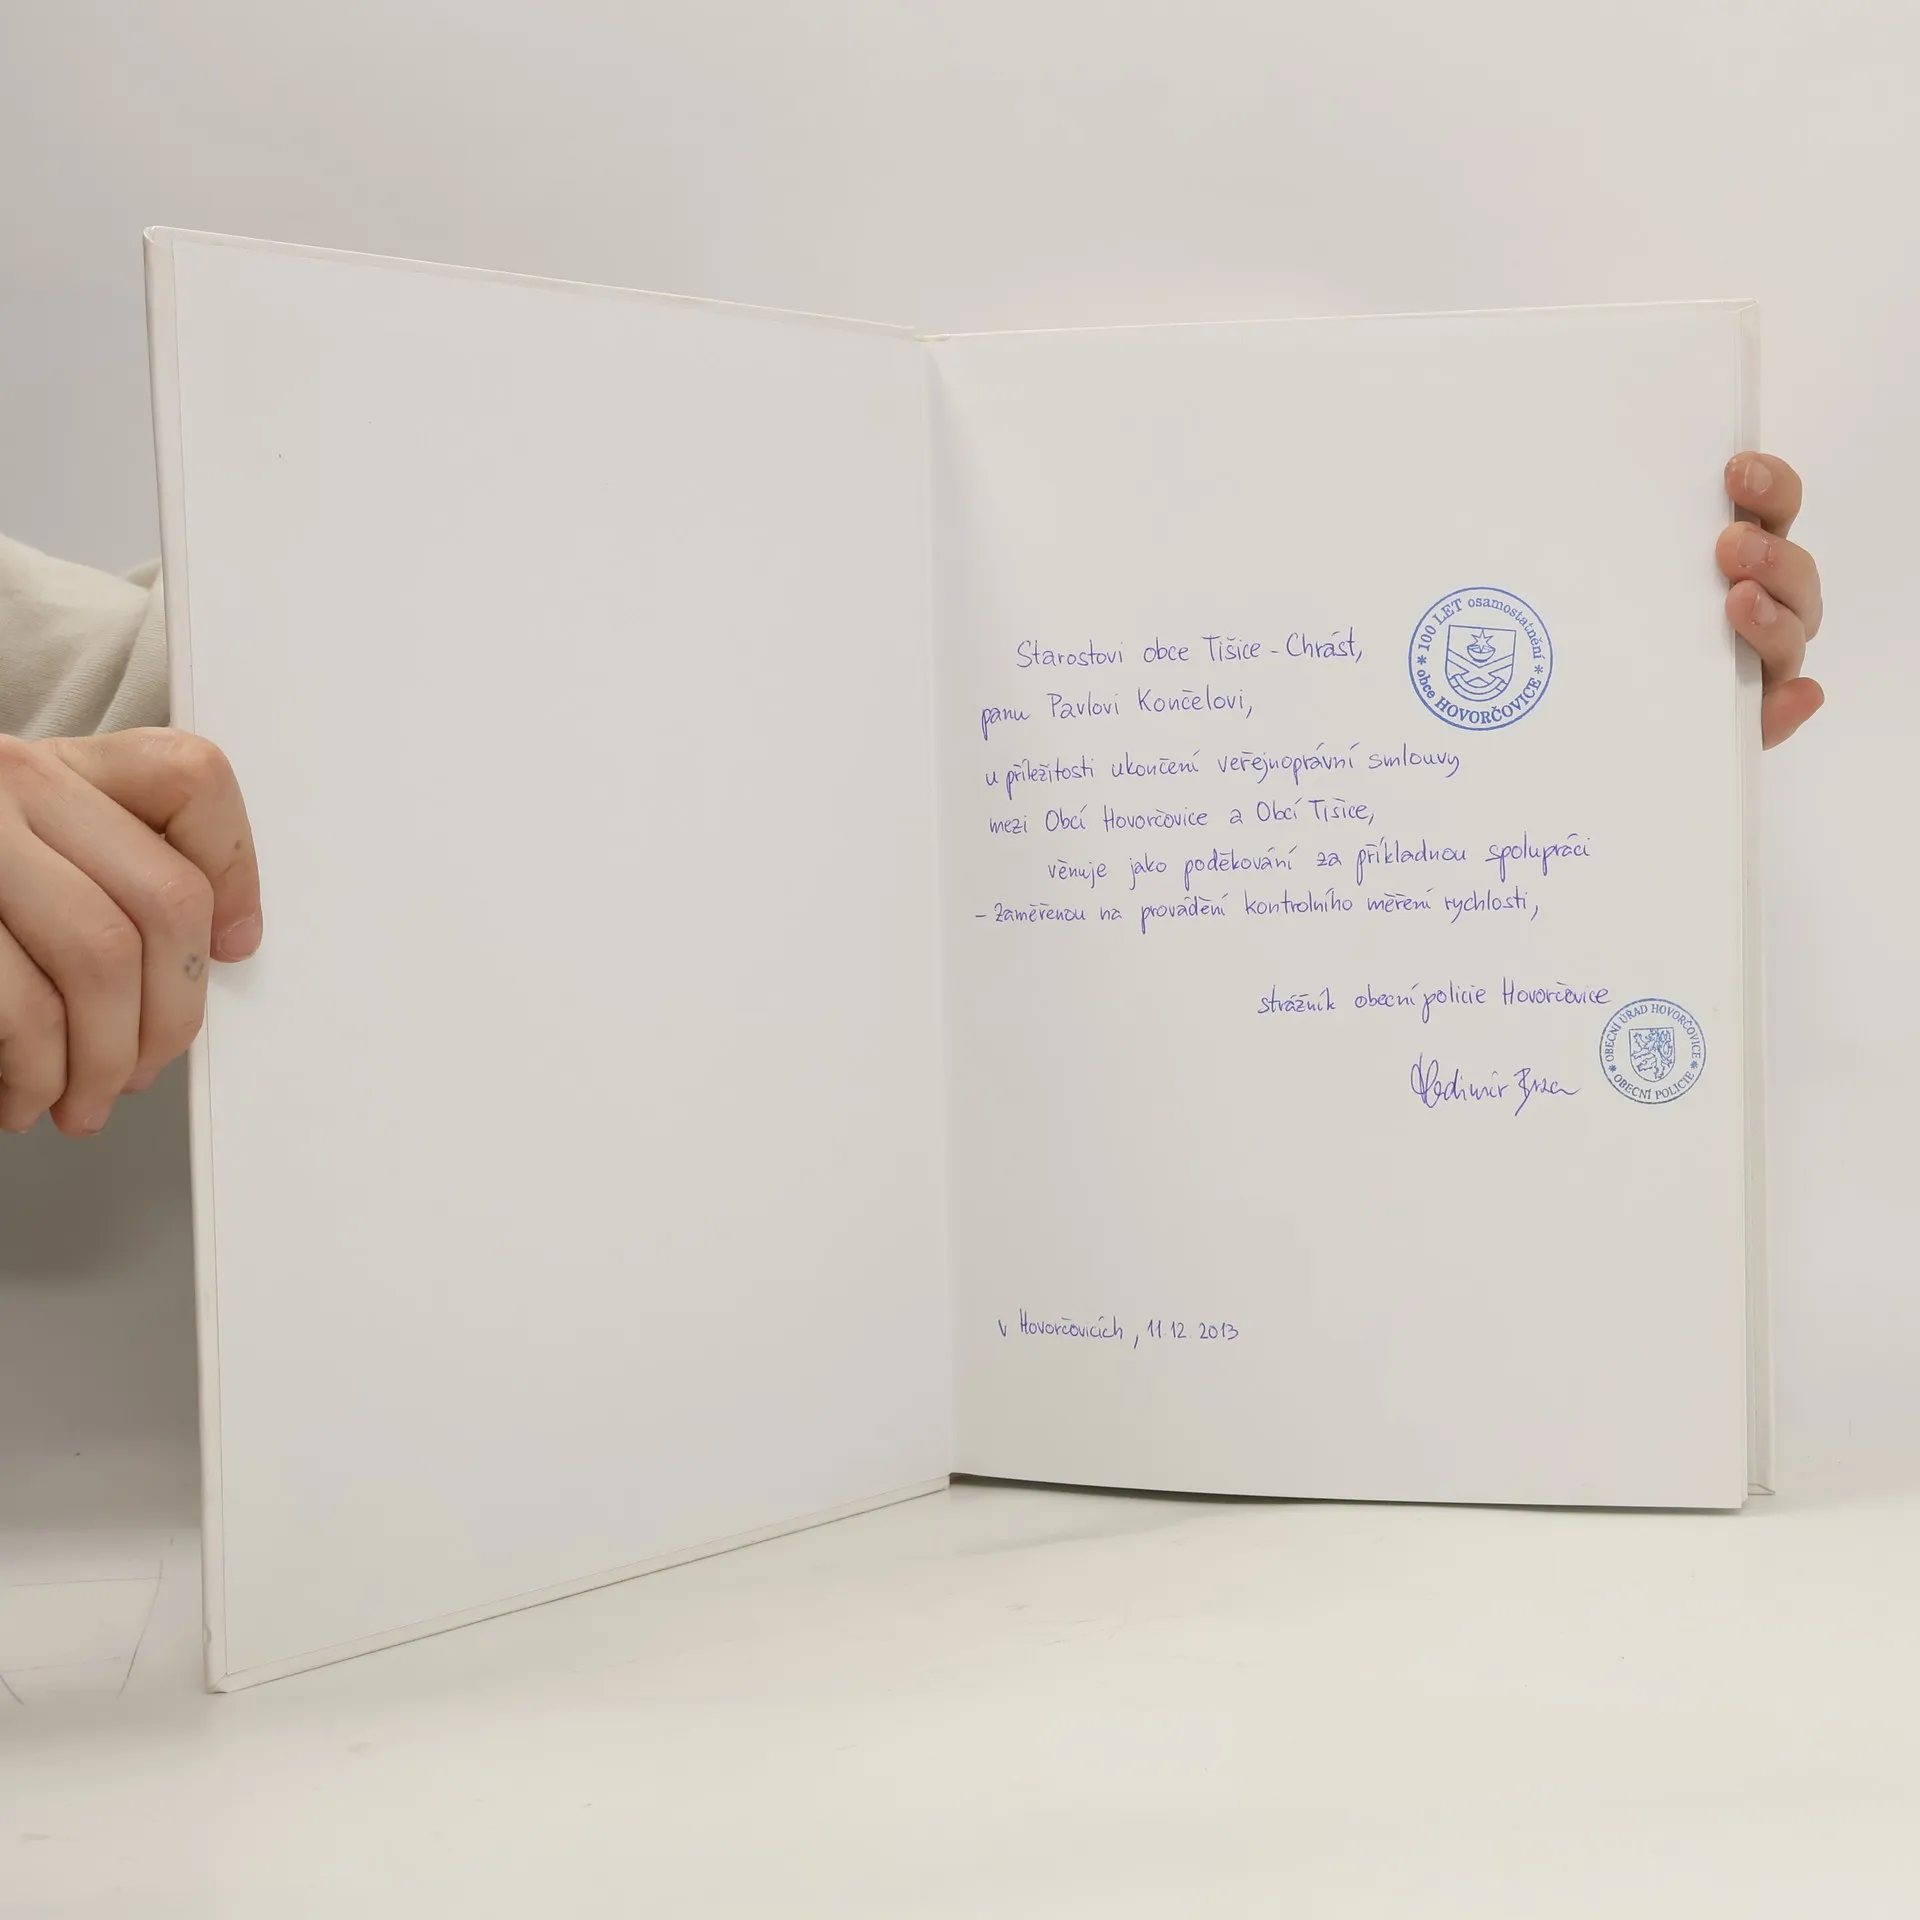 Starostovi obce Tišice - Chrást,
panu Pavlovi Končelovi,
u příležitosti ukončení veřejnoprávní smlouvy
mezi Obcí Hovorčovice a Obcí Tišice,
věnuje jako poděkování za příkladnou spolupráci
- zaměřenou na provádění kontrolního měření rychlosti,
strážník obecní policie Hovorčovice
Vladimír
v Hovorčovicích, 11.12.2013
* 100 LET osamostatnění *
obce HOVORČOVICE
* OBECNÍ ÚŘAD HOVORČOVICE *
OBECNÍ POLICIE